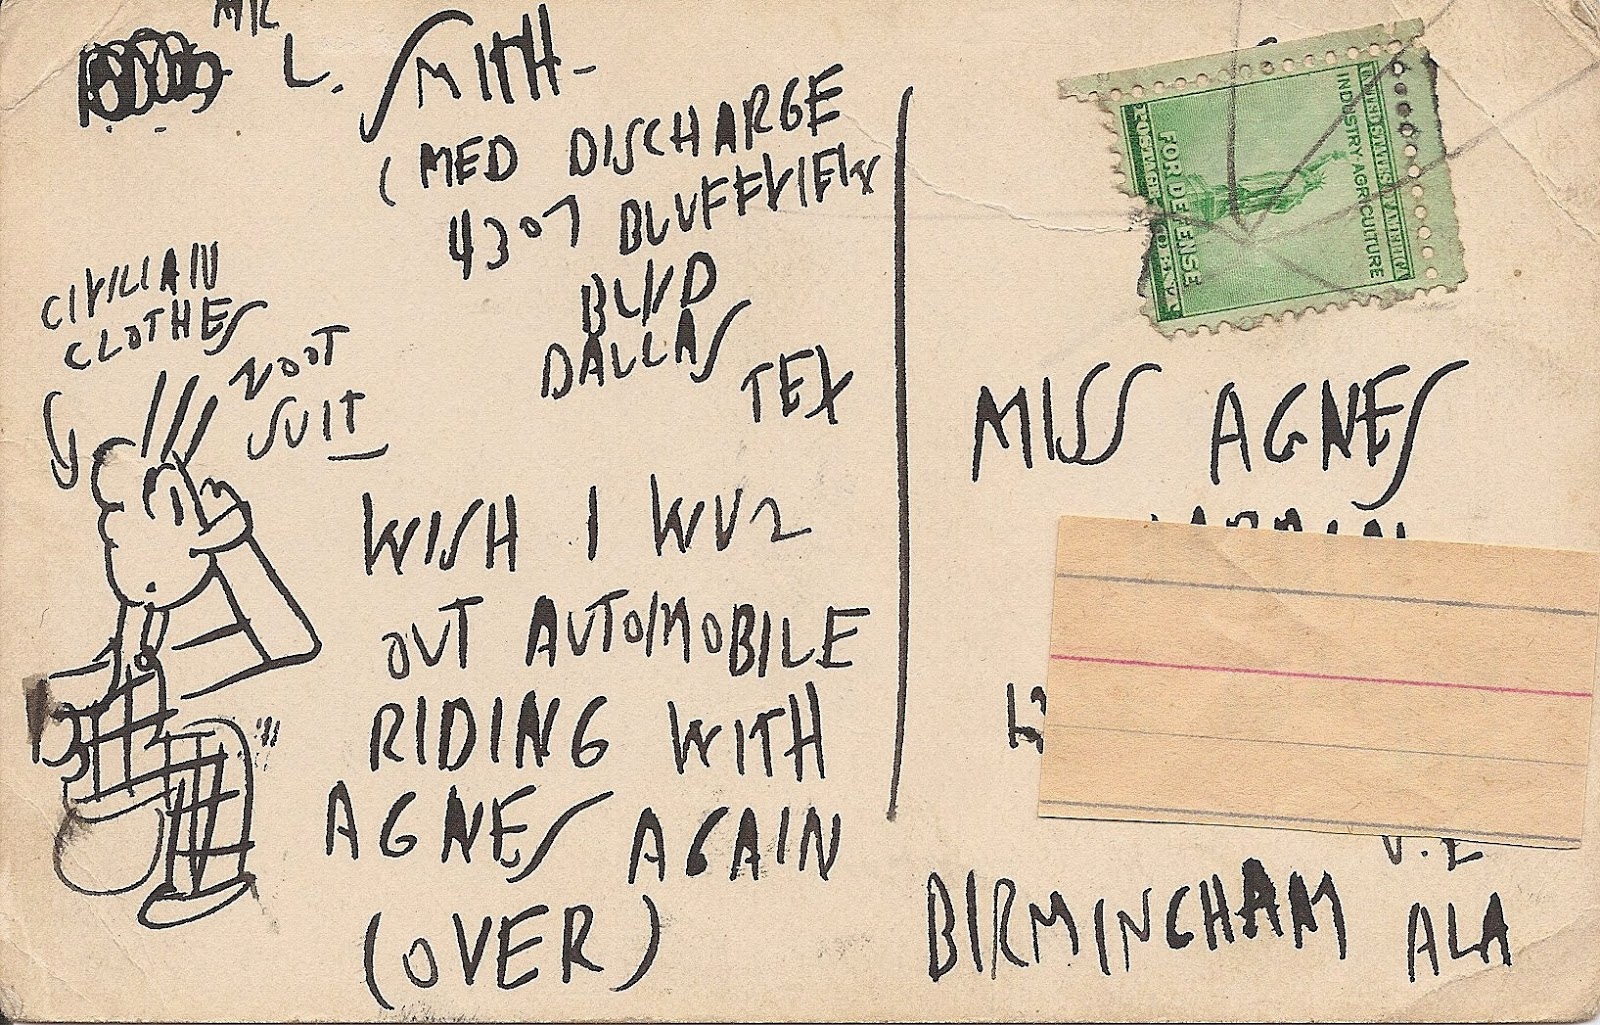 MR
L. SMITH-
(MED DISCHARGE
4307 BLUFFVIEW
BLVD
DALLAS
TEX
CIVILIAN
CLOTHES
ZOOT
SUIT
WISH I WUZ
OUT AUTOMOBILE
RIDING WITH
AGNES AGAIN
(OVER)
UNITED STATES OF AMERICA
INDUSTRY AGRICULTURE
FOR DEFENSE
POSTAGE
MISS AGNES
BIRMINGHAM ALA